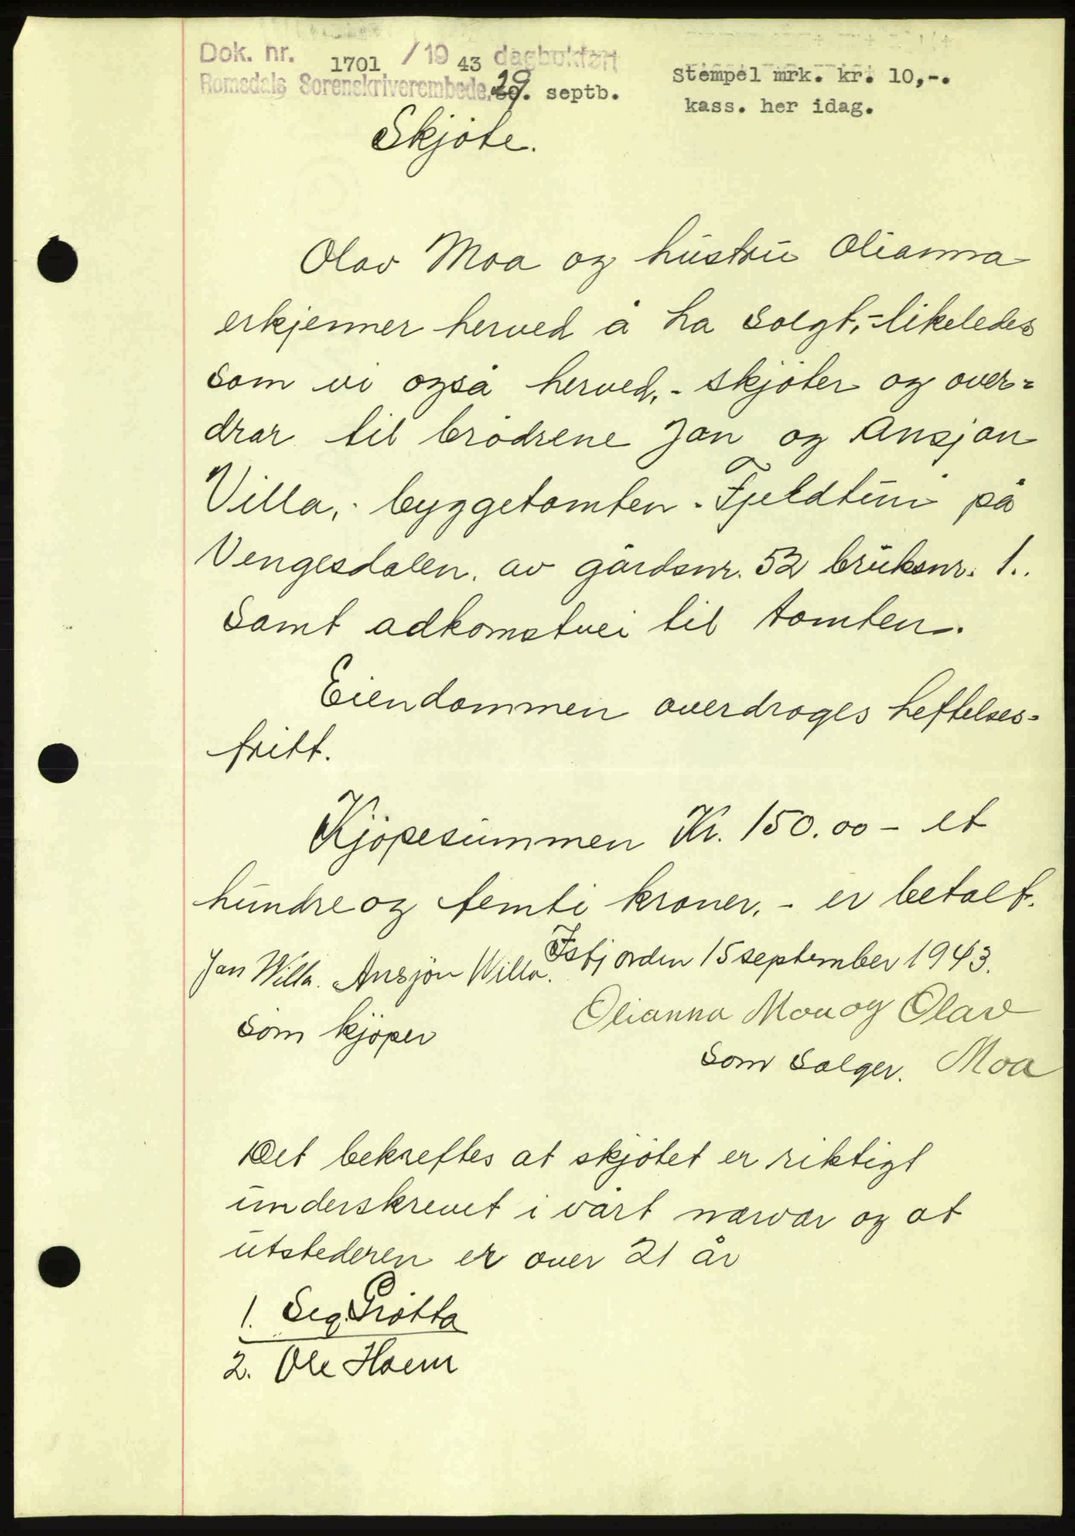 Dok. nr. 1701 / 19 43 dagbokført
Romsdals Sorenskriverembede, 29. septb.
Stempel mrk. kr. 10,-.
kass. her idag.
Skjöte.
Olav Moa og hustru Olianna
erkjenner herved å ha solgt, - likeledes
som vi også herved, - skjöter og over=
drar til brödrene Jon og Ansjon
Villa, - byggetomten - Fjeldtun på
Vengesdalen. av gårdsnr. 52 bruksnr. 1..
samt adkomstvei til tomten.
Eiendommen overdroges heftelses=
fritt.
Kjöpesummen Kr. 150.00 - et
hundre og femti kroner, - er betalt.
Isfjorden 15 september 1943.
Jon Willa. Ansjön Willa.
som kjöper
Olianna Moa og Olav
Moa
som Selger.
Det bekreftes at skjötet er riktigt
underskrevet i vårt nærvær og at
utstederen er over 21 år
1. Seq. Grötta
2. Ole Hoem